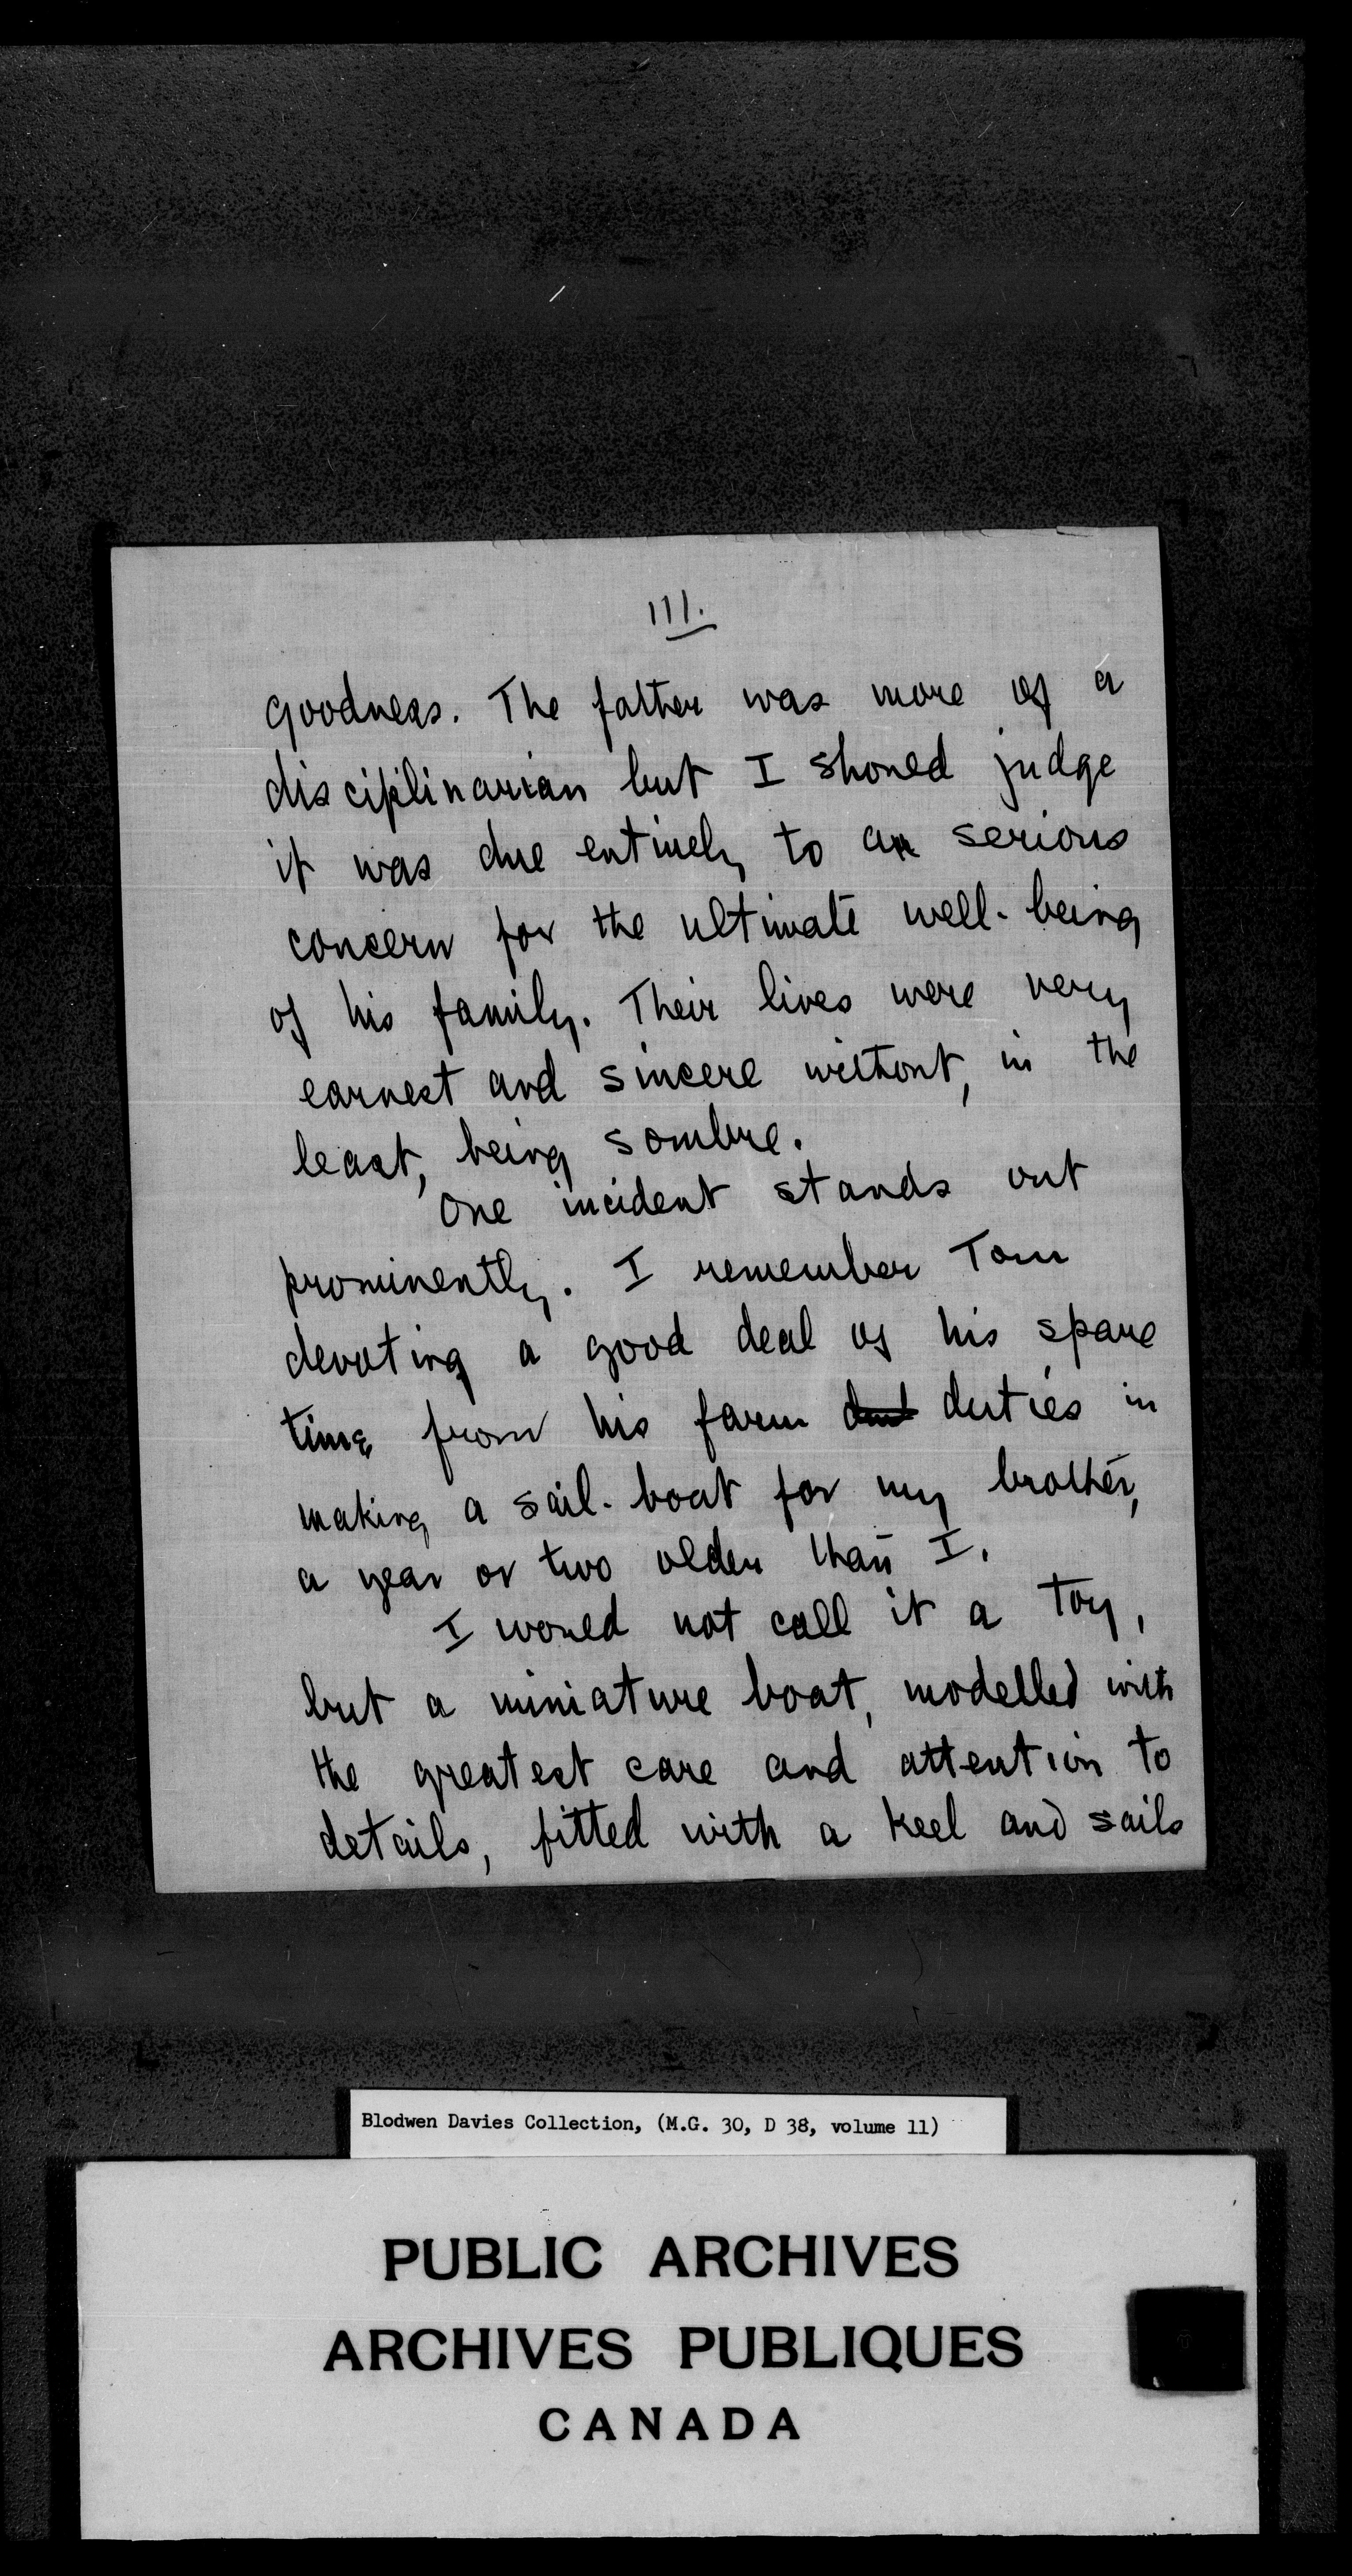 111.
goodness. The father was more of a
disciplinarian but I should judge
it was due entirely to a serious
concern for the ultimate well-being
of his family. Their lives were very
earnest and sincere without, in the
least, being sombre.
One incident stands out
prominently. I remember Tom
devoting a good deal of his spare
time from his farm duties in
making a sail-boat for my brother,
a year or two older than I.
I would not call it a toy,
but a miniature boat, modelled with
the greatest care and attention to
details, fitted with a keel and sails
Blodwen Davies Collection, (M.G. 30, D 38, volume 11)
PUBLIC ARCHIVES
ARCHIVES PUBLIQUES
CANADA